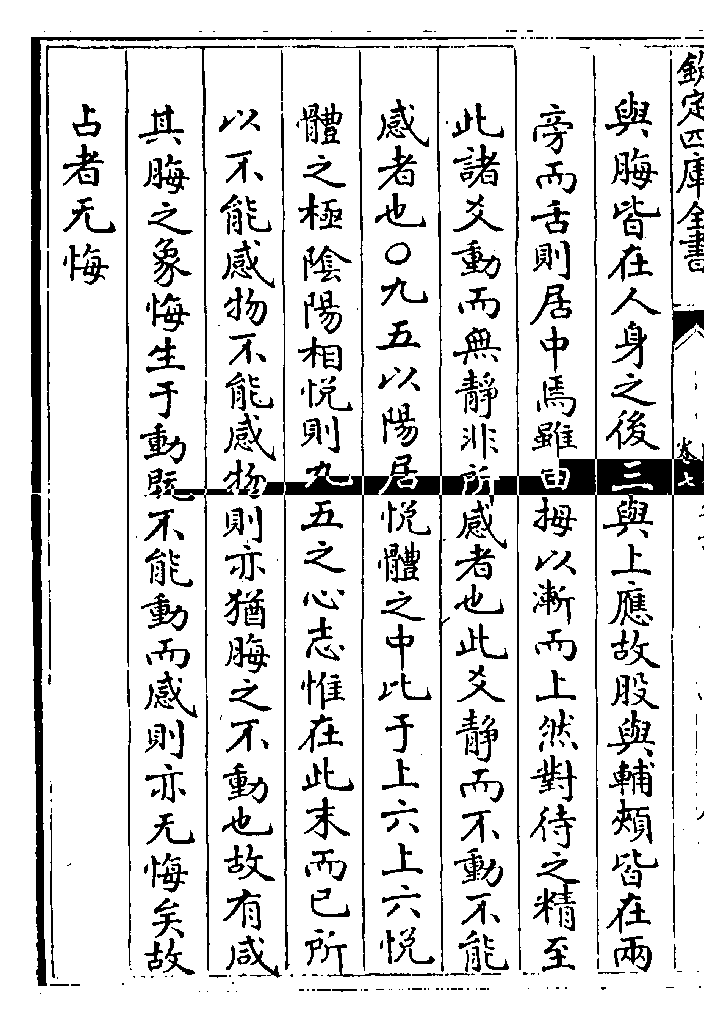 欽定四庫全書
卷七
與脢皆在人身之後三與上應故股與輔頰皆在兩
旁而舌則居中焉雖由拇以漸而上然對待之精至
此諸爻動而無靜非所感者也此爻靜而不動不能
感者也○九五以陽居悅體之中比于上六上六悅
體之極陰陽相悅則九五之心志惟在此末而已所
以不能感物不能感物則亦猶脢之不動也故有咸
其脢之象悔生于動既不能動而感則亦无悔矣故
占者无悔